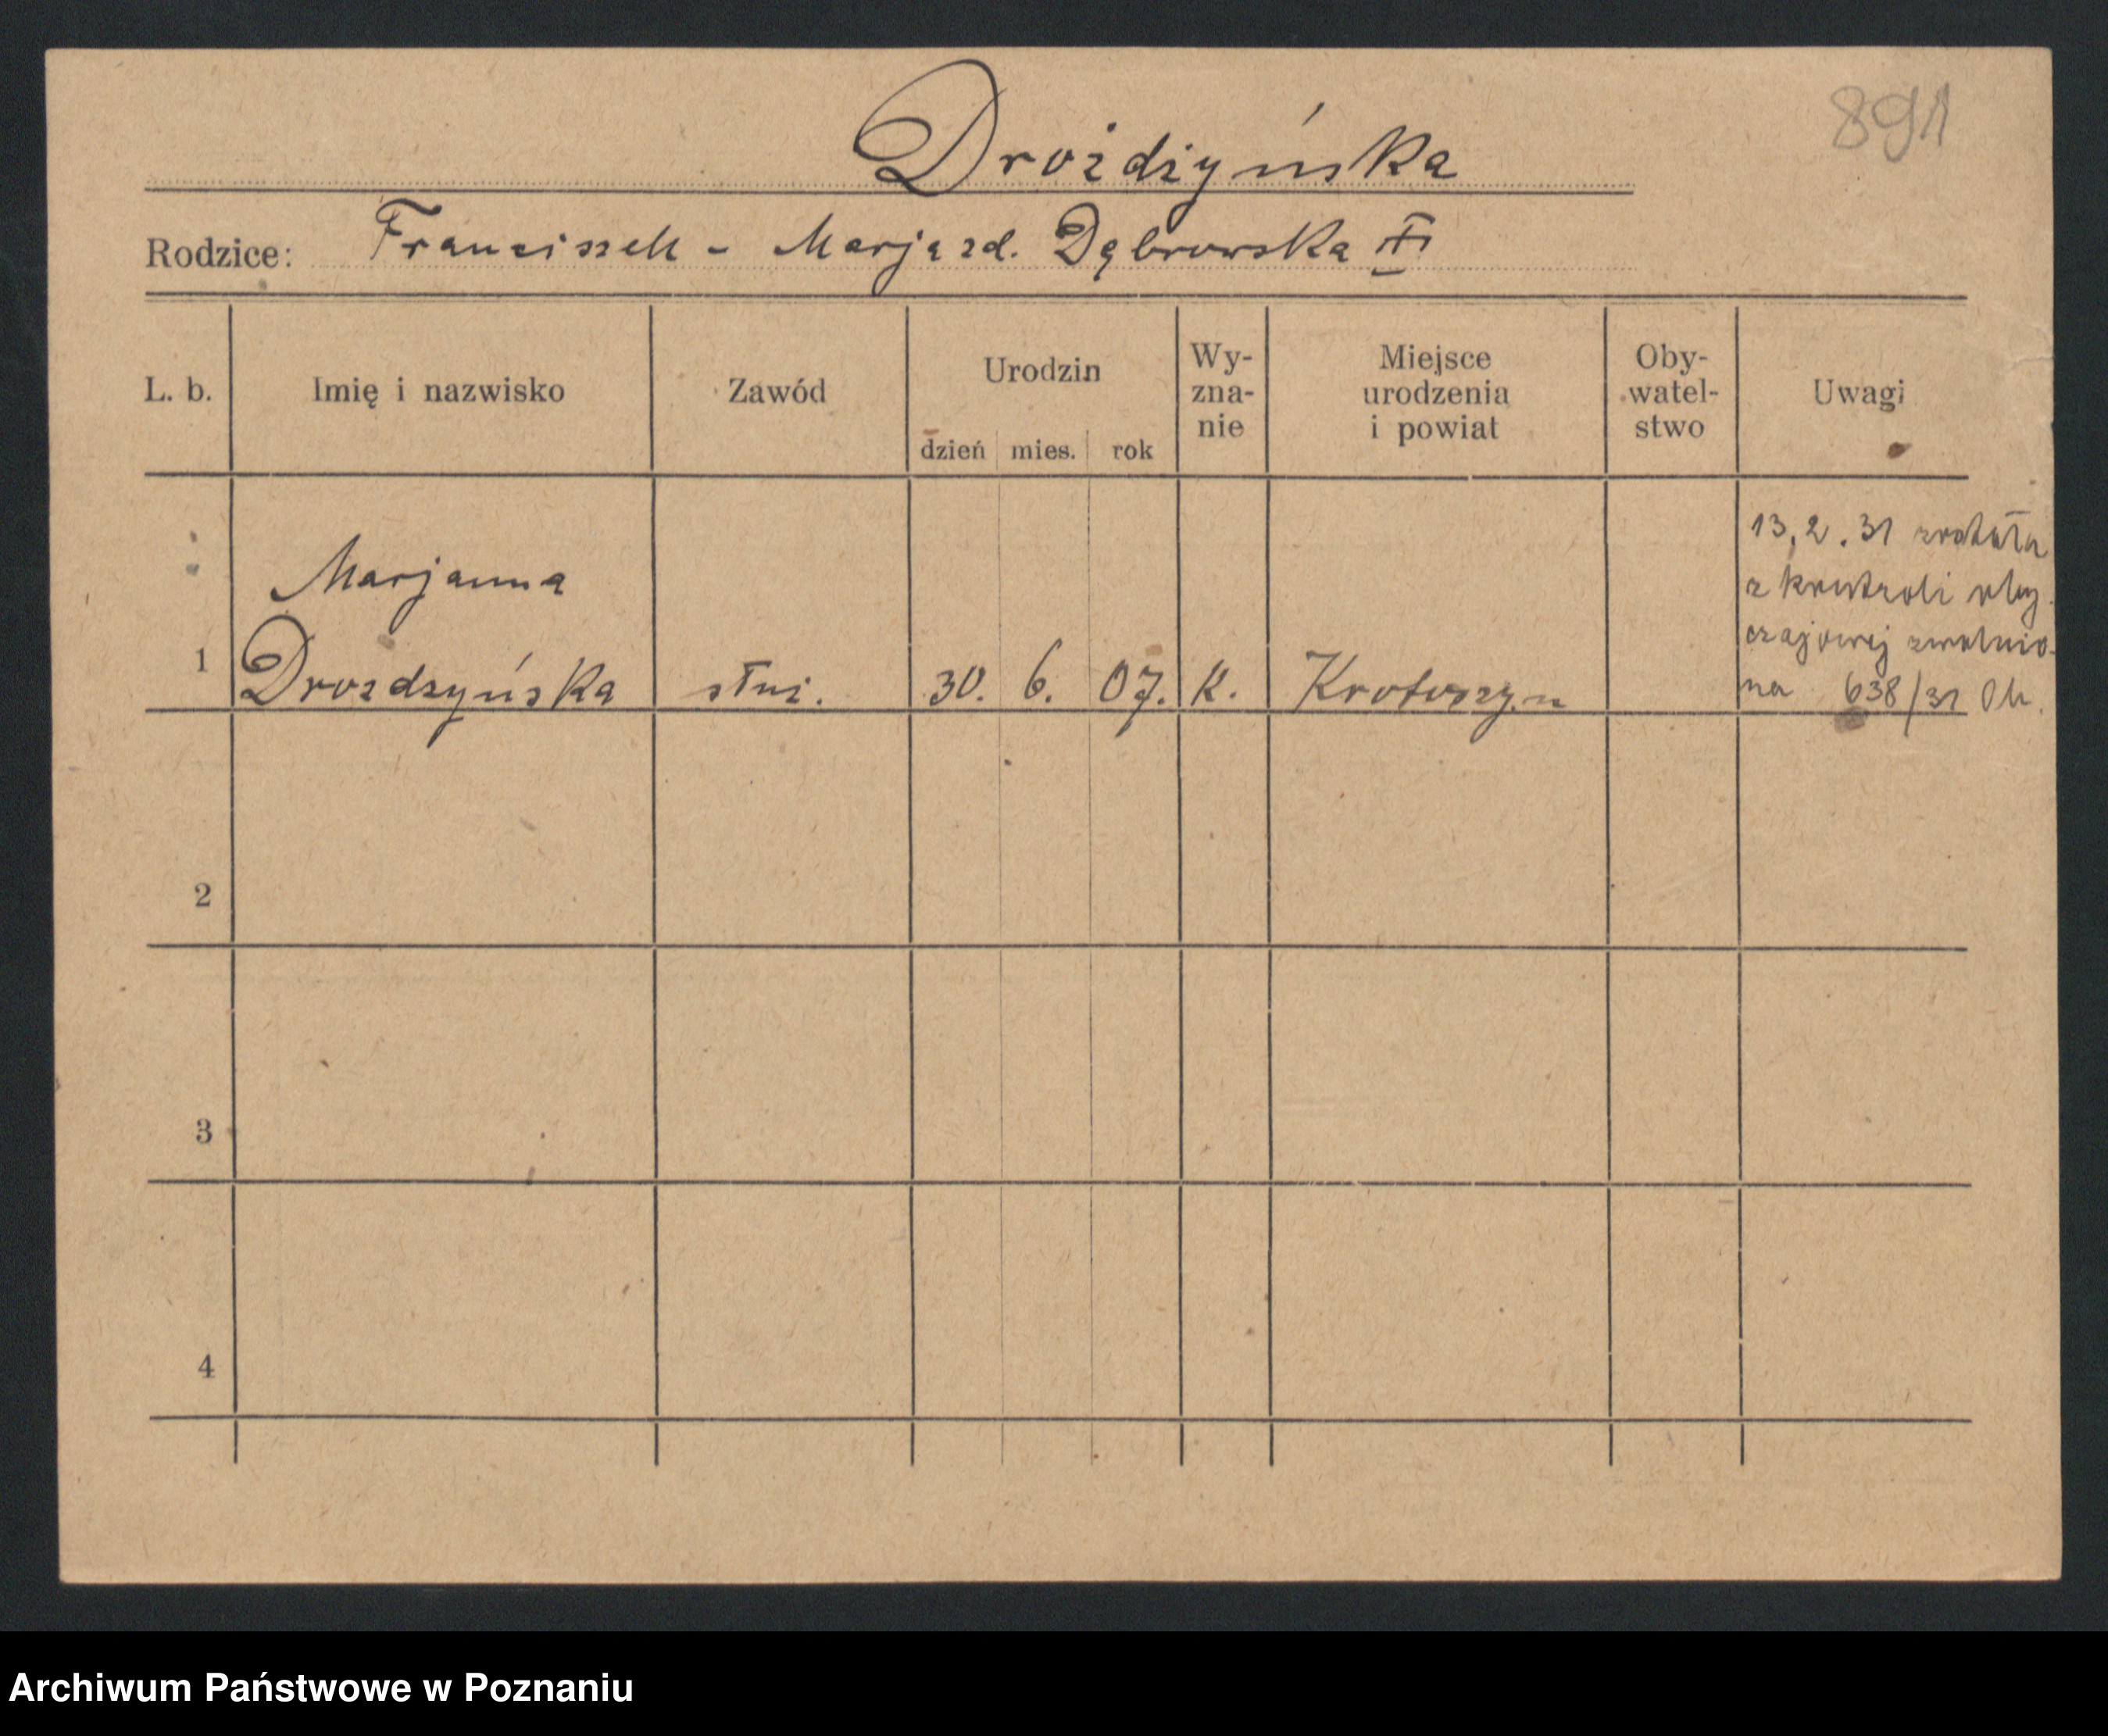 891
Drożdżyńska
Rodzice: Franciszek - Marja zd. Dąbrowska
L. b.
Imię i nazwisko
Zawód
Urodzin
dzień mies. rok
Wy-
zna-
nie
Miejsce
urodzenia
i powiat
Oby-
watel-
stwo
Uwagi
1
Marjanna
Drożdżyńska
służ.
30. 6. 07.
k.
Krotoszyn
13.2.31 została
z kontroli oby
czajowej zwolnio-
na 638/31
2
3
4
Archiwum Państwowe w Poznaniu